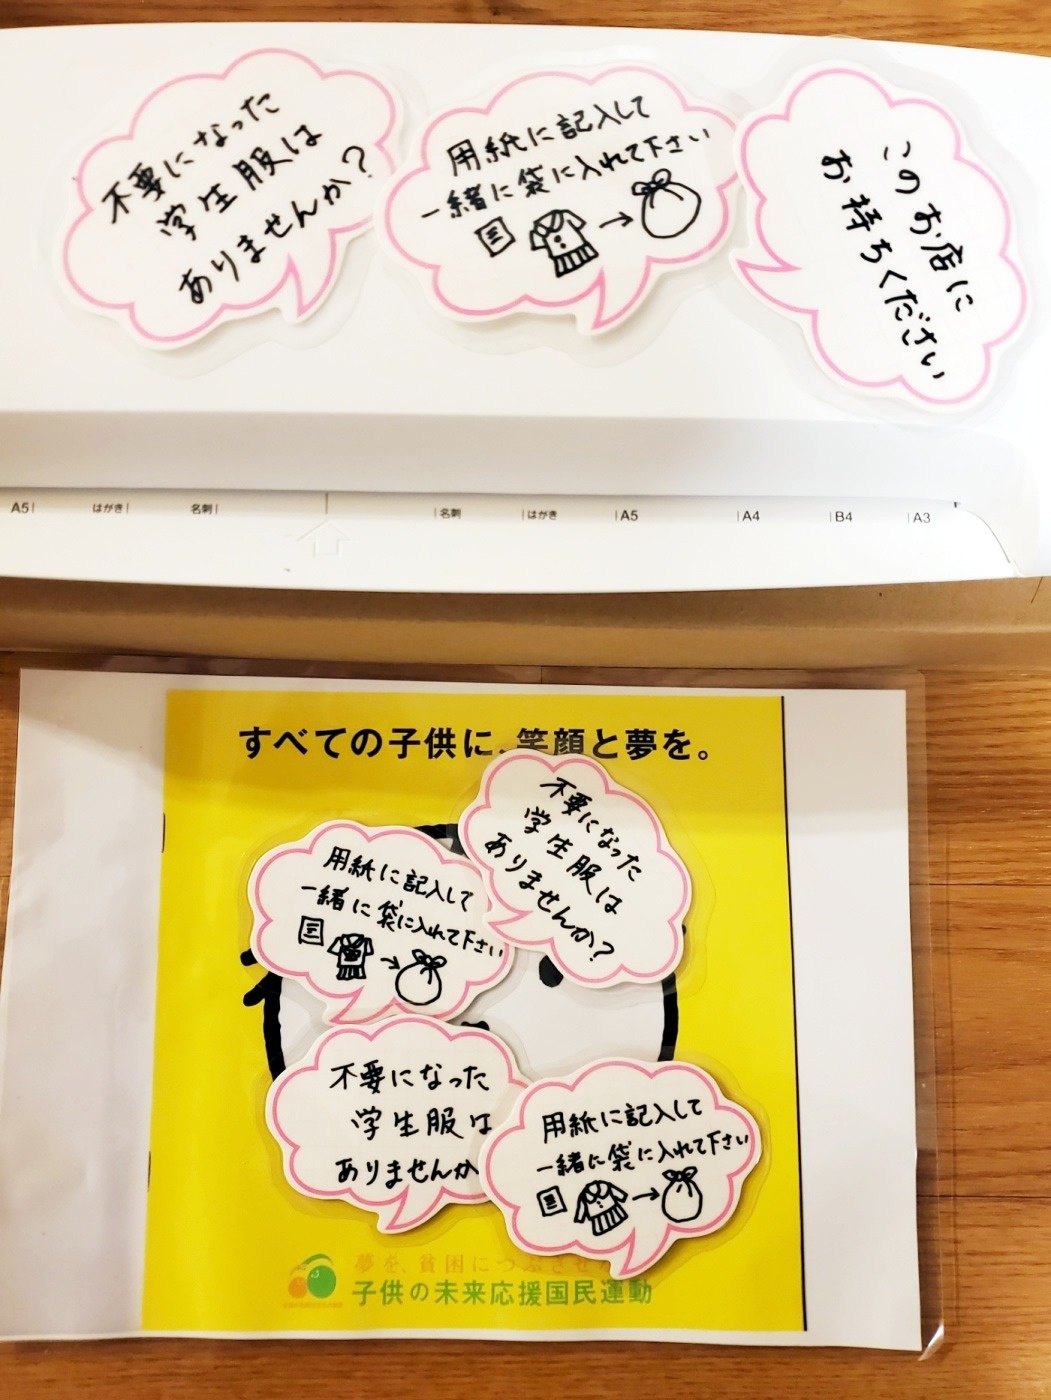 不要になった
学生服は
ありませんか？
用紙に記入して
一緒に袋に入れて下さい
このお店に
お持ちください
A5
はがき
名刺
名刺
はがき
A5
A4
B4
A3
すべての子供に、笑顔と夢を。
不要になった
学生服は
ありませんか？
用紙に記入して
一緒に袋に入れて下さい
不要になった
学生服は
ありませんか
用紙に記入して
一緒に袋に入れて下さい
夢を、貧困につぶさせ
子供の未来応援国民運動